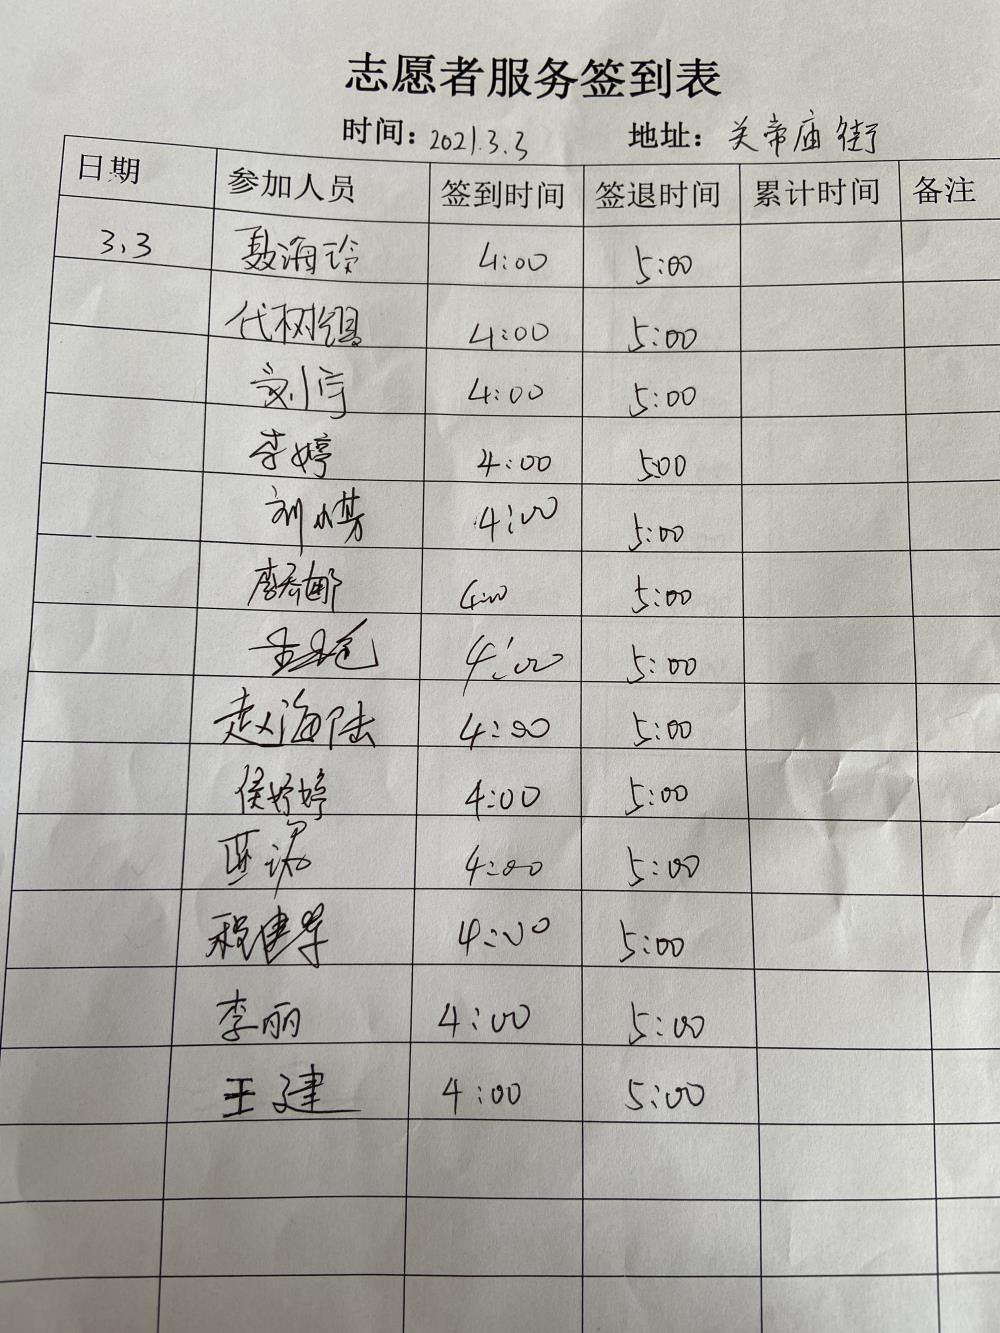 志愿者服务签到表
时间：2021.3.3 地址：关帝庙街
日期 参加人员 签到时间 签退时间 累计时间 备注
3.3 聂海玲 4:00 5:00
代树 4:00 5:00
刘宇 4:00 5:00
李婷 4:00 500
刘小芳 4:00 5:00
李 娜 4:00 5:00
4:00 5:00
赵海陆 4:00 5:00
侯婷婷 4:00 5:00
4:00 5:00
程建军 4:00 5:00
李丽 4:00 5:00
王建 4:00 5:00